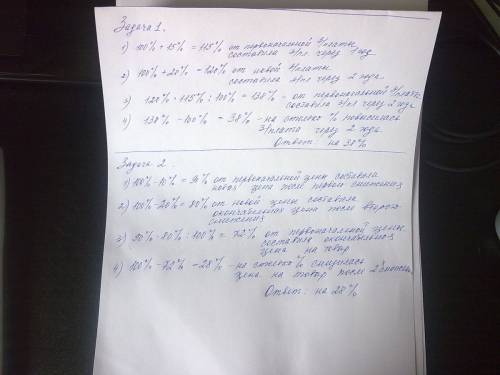 Задача 1.
1) 100% + 15% = 115% от первоначальной з/платы
составила з/пл через 1 год
2) 100% + 20% = 120% от новой з/платы
составила з/пл через 2 года
3) 120% · 115% : 100% = 138% - от первоначальной з/платы
составила з/пл через 2 года
4) 138% - 100% = 38% - на столько % повысилась
з/плата через 2 года.
Ответ: на 38%
Задача 2.
1) 100% - 10% = 90% от первоначальной цены составила
новая цена после первого снижения
2) 100% - 20% = 80% от новой цены составила
окончательная цена после второго
снижения
3) 90% · 80% : 100% = 72% от первоначальной цены
составила окончательная
цена на товар
4) 100% - 72% = 28% - на столько % снизилась
цена на товар после 2 снижений
Ответ: на 28%